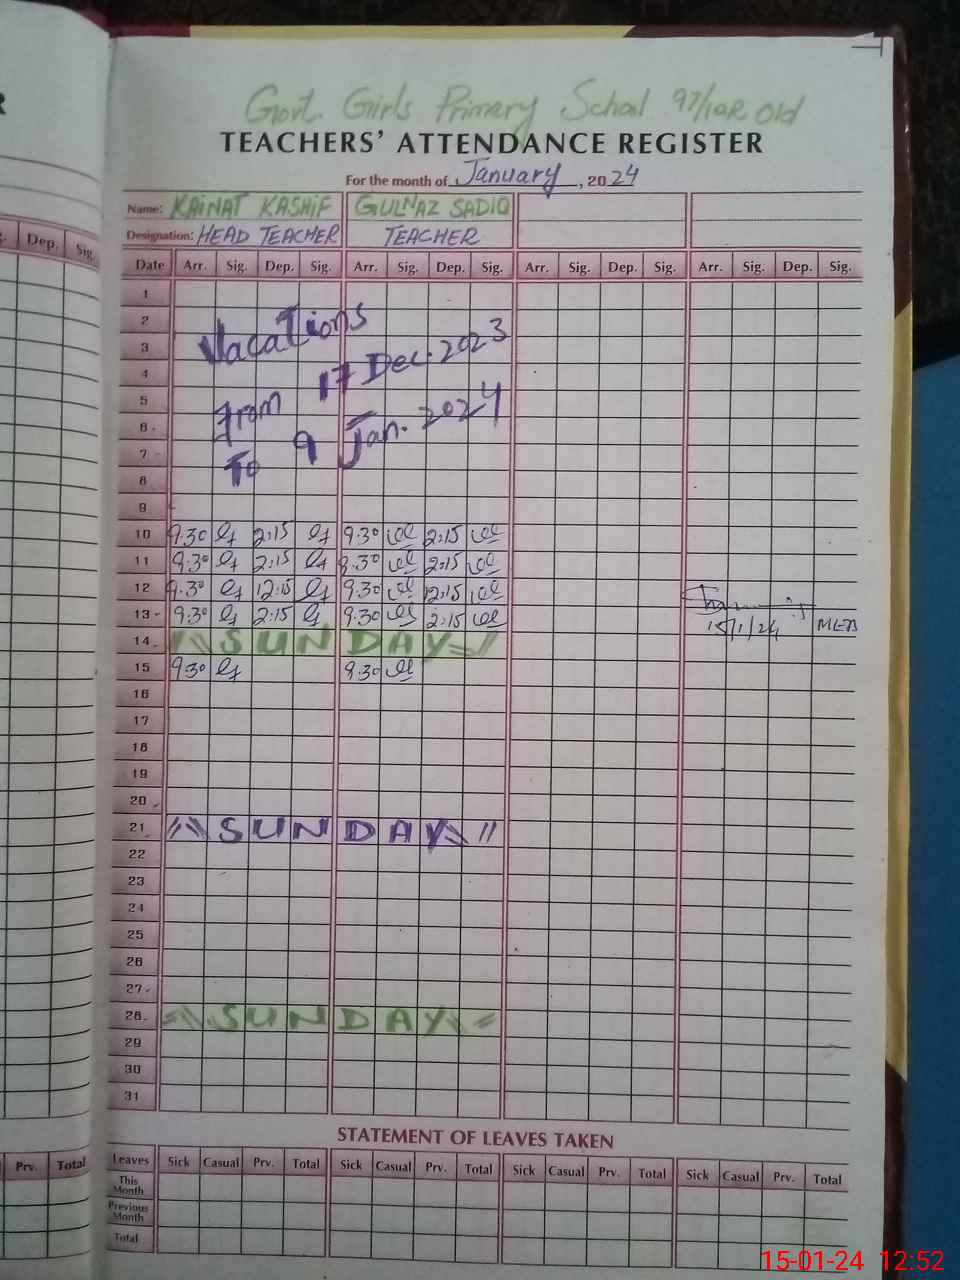 R
Govt. Girls Primary School 97/10R Old
TEACHERS' ATTENDANCE REGISTER
For the month of January, 2024
Name: KAINAT KASHIF GULNAZ SADIQ
Designation: HEAD TEACHER TEACHER
Dep. Sig.
Date Arr. Sig. Dep. Sig. Arr. Sig. Dep. Sig. Arr. Sig. Dep. Sig. Arr. Sig. Dep. Sig.
1
2
3
4
5
6
7
8
9
Vacations
From 17 Dec. 2023
To 9 Jan. 2024
10 9:30 2:15 9:30 2:15
11 9:30 2:15 9:30 2:15
12 9:30 12:15 9:30 12:15
13 9:30 2:15 9:30 2:15
15/1/24
14 SUNDAY
15 9:30 9:30
16
17
18
19
20
21 SUNDAY
22
23
24
25
26
27
28 SUNDAY
29
30
31
STATEMENT OF LEAVES TAKEN
Prv. Total
Leaves Sick Casual Prv. Total Sick Casual Prv. Total Sick Casual Prv. Total Sick Casual Prv. Total
This Month
Previous Month
Total
15-01-24 12:52